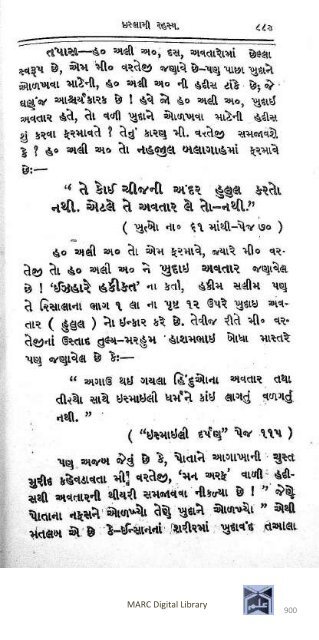 ઇસ્લામી રહસ્ય.
૮૮૭
તપાસ—હ૦ અલી અ૦, દસ, અવતારોમાં છેલ્લા
સ્વરૂપ છે, એમ મી૦ વરતેજી જણાવે છે—પણ પાછા ખુદાને
ઓળખવા માટેની, હ૦ અલી અ૦ ની હદીસ ટાંકે છે; જે
ઘણુંજ આશ્ચર્યકારક છે ! હવે જો હ૦ અલી અ૦, ખુદાઈ
અવતાર હતે, તો વળી ખુદાને ઓળખવા માટેની હદીસ
શું કરવા ફરમાવતે ? તેનું કારણ મી. વરતેજી સમજાવશે
કે ? હ૦ અલી અ૦ તો નહજુલ બલાગાહમાં ફરમાવે
છે:—
“ તે કોઈ ચીજની અંદર હુલુલ કરતો
નથી. એટલે તે અવતાર લે તો—નથી.”
( ખુત્બો ના૦ ૬૧ માંથી—પેજ ૭૦ )
હ૦ અલી અ૦ તો એમ ફરમાવે, જ્યારે મી૦ વર-
તેજી તો હ૦ અલી અ૦ ને ખુદાઇ અવતાર જણાવેલ
છે ! ‘ઈઝહારે હકીકત’ ના કર્તા, હકીમ સલીમ પણ
તે રિસાલાના ભાગ ૧ લા ના પૃષ્ટ ૧૨ ઉપરે ખુદાઇ અવ-
તાર ( હુલુલ ) નો ઇન્કાર કરે છે. તેવીજ રીતે મી૦ વર-
તેજીનાં ઉસ્તાદ તુલ્ય—મરહુમ હાશમભાઇ બોઘા માસ્તરે
પણ જણાવેલ છે કે:—
“ અગાઉ થઇ ગયલા હિંદુઓના અવતાર તથા
તીરથો સાથે ઇસ્માઇલી ધર્મને કાંઇ લાગતું વળગતું
નથી. ”
( “ઇસ્માઇલી દર્પણ” પેજ ૧૧૫ )
પણ અજબ જેવું છે કે, પોતાને આગાખાની ચુસ્ત
મુરીદ કહેવડાવતા મી૦ વરતેજી, ‘મન અરફ’ વાળી હદી-
સથી અવતારની થીયરી સમજાવવા નીકળ્યા છે ! “ જેણે
પોતાના નફસને ઓળખ્યો તેણે ખુદાને ઓળખ્યો ” એથી
મતલબ એ છે કે—ઈન્સાનનાં શરીરમાં ખુદાવંદ તઆલા
MARC Digital Library
900